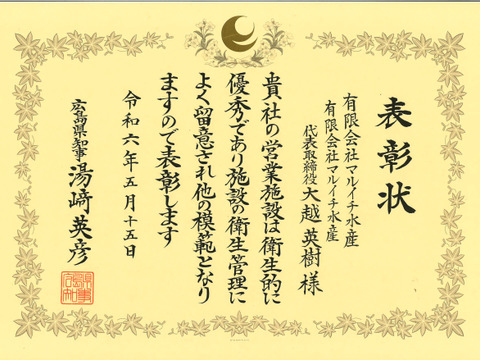 表彰状
有限会社マルイチ水産
有限会社マルイチ水産
代表取締役 大越英樹様
貴社の営業施設は衛生的に
優秀であり施設の衛生管理に
よく留意され他の模範となり
ますので表彰します
令和六年五月十五日
広島県知事 湯﨑英彦